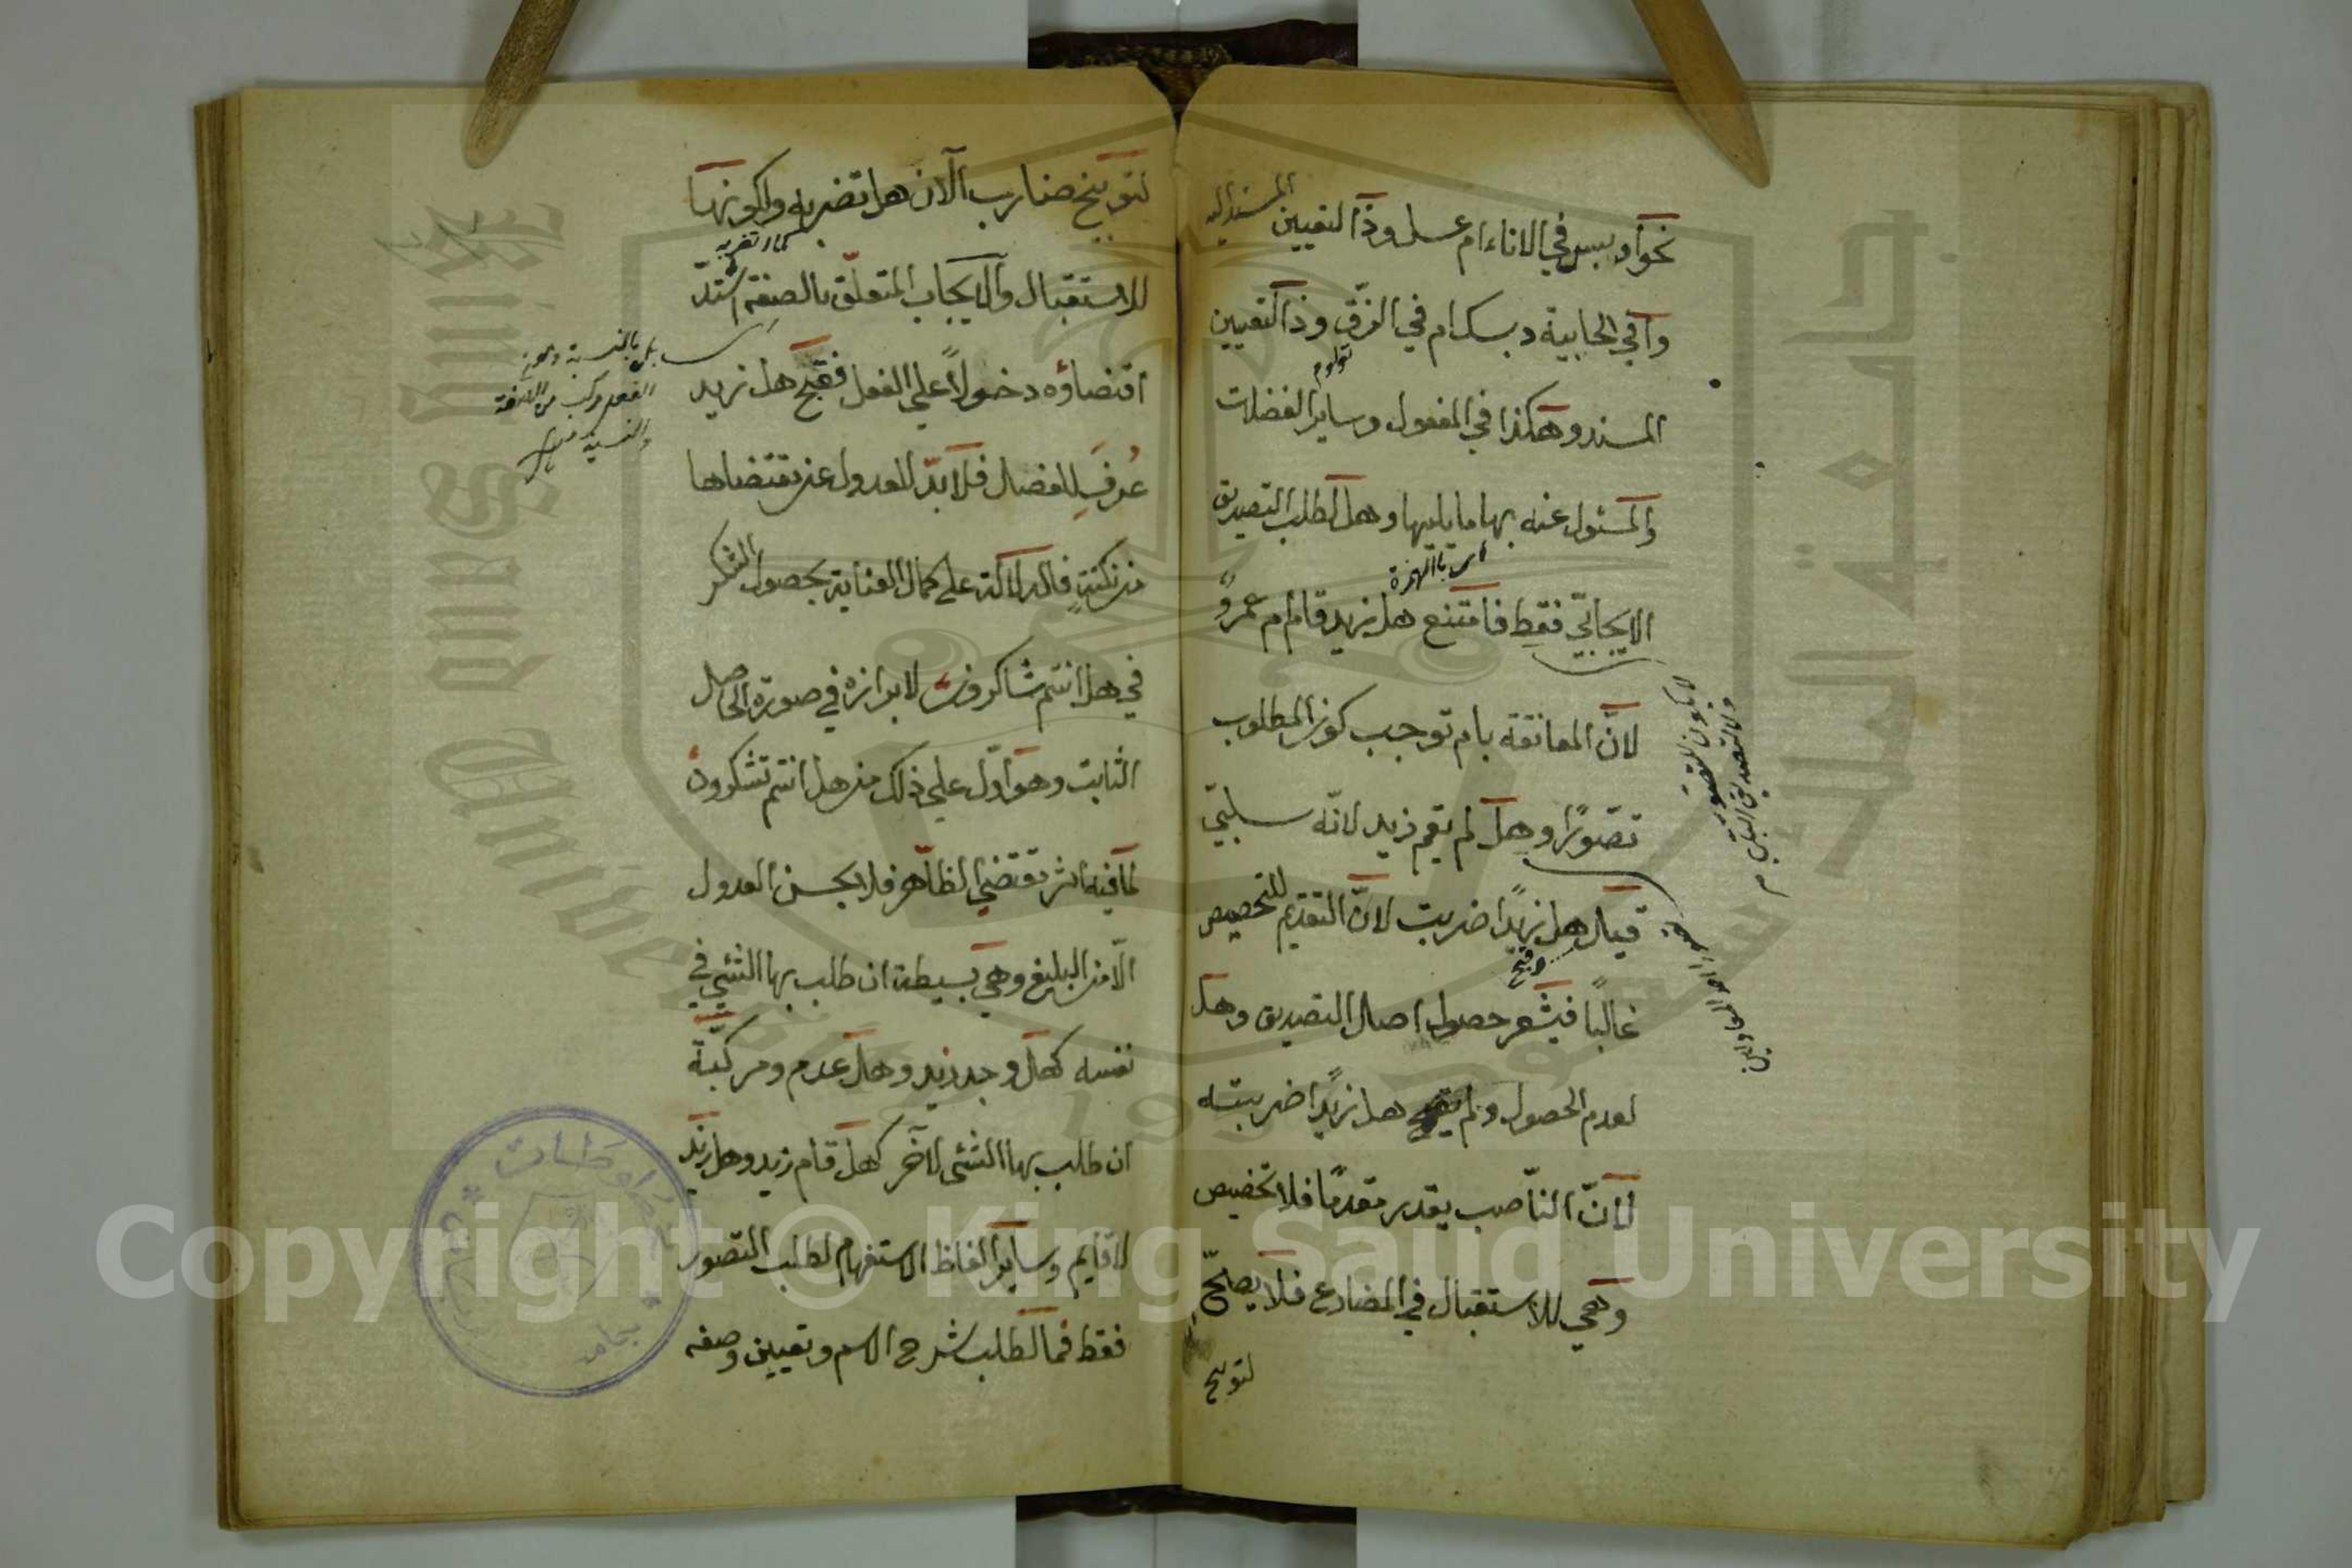 نحو ادبس في الاناء ام عسل وذا لتعيين المسند اليه
وا في الخابية دبسك ام في الزق وذا لتعيين
المسند وهكذا في المفعول وساير الفضلات
والمسئول عنه بها ما يليها وهل لطلب التصديق
اى بالهمزة
الايجابيّ فقط فامتنع هل زيد قام ام عمرو
لانّ المعانقة بام توجب كون المطلوب
تصوّرا وهل لم يقم زيد لانّه سلبيّ
قيل هل زيدًا ضربت لانّ التقديم للتخصيص
وقبح
غالبًا فيشعر حصول اصل التصديق وهل
لعدم الحصول ولم يقبح هل زيدًا ضربته
لانّ النّاصب يقدر مقدمًا فلا تخصيص
وهي للاستقبال في المضارع فلا يصلح
لتوبيخ
لا يكون للتصور
ولا للتصديق السلبي م
لتوبيخ ضارب الآن هل تضربه ولكونها
للاستقبال والايجاب المتعلّق بالصفة اشتدّ
اقتضاؤه دخولاً علي الفعل فقبح هل زيد
عُرف للفصل فلا بدّ للعدول عن مقتضاها
من نكتةٍ فالدلالة على كمال العناية بحصول الشكر
في هل انتم شاكرون لابرازه في صورة الحاصل
الثابت وهو ادلّ علي ذلك من هل انتم تشكرون
لما فيه اثر مقتضي الظّاهر فلا يحسن العدول
الّا من البليغ وهي بسيطة ان طلب بها الشئ في
نفسه كهل وجد زيد وهل عدم ومركبّة
ان طلب بها الشئ لآخر كهل قام زيد وهل زيد
لا قايم وساير الفاظ الاستفهام لطلب التصور
فقط فما لطلب شرح الاسم وتعيين وصفه
بل بالنسبة
الفعل مركب من
والنسبة منه
Copyright © King Saud University
جامعة الملك سعود
King Saud University
1957